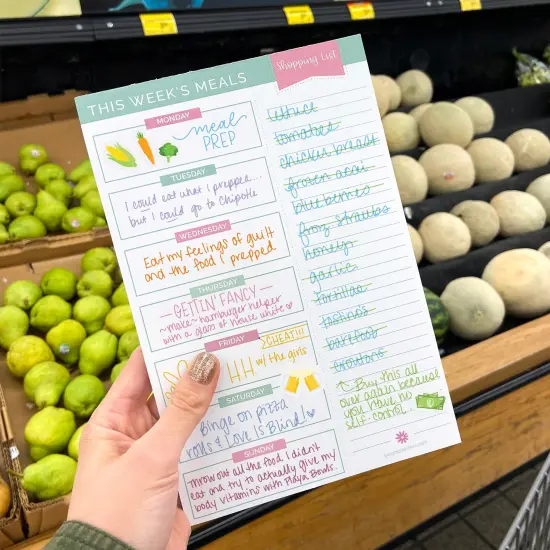 THIS WEEK'S MEALS
MONDAY
meal
PREP
TUESDAY
I could eat what I prepped...
but I could go to Chipotle
WEDNESDAY
Eat my feelings of guilt
and the food I prepped.
THURSDAY
-GETTIN' FANCY-
~make~ hamburger helper
with a glass of house white
FRIDAY
CHEAT!!!
HH w/ the girls
SATURDAY
Binge on pizza
rolls & Love is Blind!
SUNDAY
Throw out all the food I didn't
eat and try to actually give my
body vitamins with Playa Bowls.
Shopping List
lettuce
tomatoes
chicken breast
frozen acai
blueberries
froz straubs
honey
garlic
tortillas
tostinos
barefoot
croutons
Buy this all
over again because
you have no
self-control.